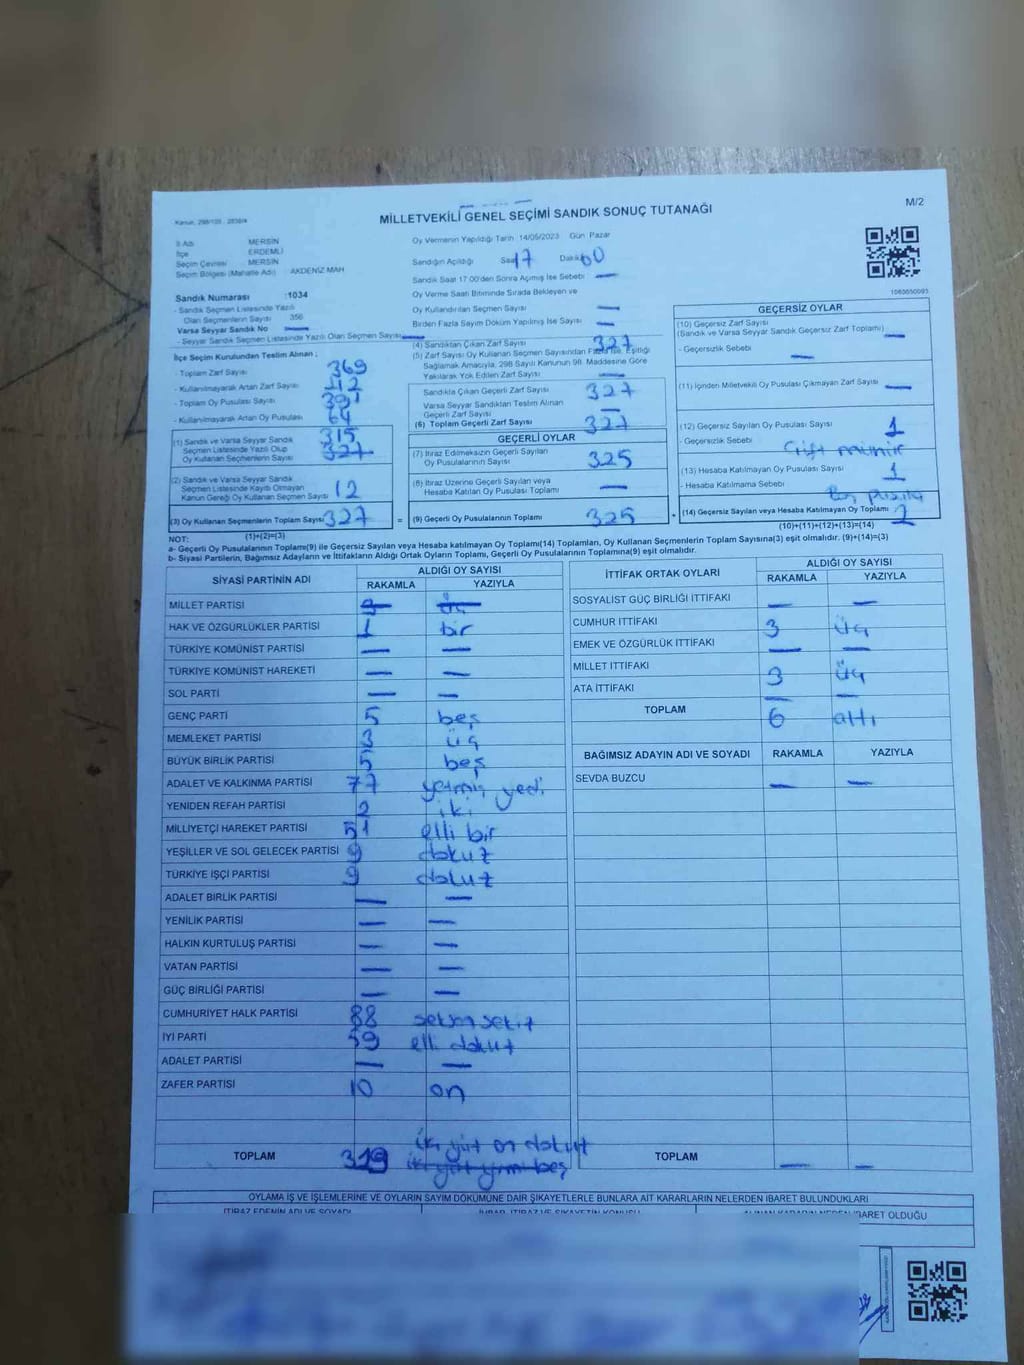 Kanun: 298/105 , 2839/4
MİLLETVEKİLİ GENEL SEÇİMİ SANDIK SONUÇ TUTANAĞI
M/2
İl Adı MERSİN
İlçe ERDEMLİ
Seçim Çevresi MERSİN
Seçim Bölgesi (Mahalle Adı) AKDENİZ MAH
Oy Vermenin Yapıldığı Tarih 14/05/2023 Gün Pazar
Sandığın Açıldığı Saat 17 Dakika 00
Sandık Saat 17 00'den Sonra Açılmış İse Sebebi —
Oy Verme Saati Bitiminde Sırada Bekleyen ve
Oy Kullandırılan Seçmen Sayısı —
Birden Fazla Sayım Döküm Yapılmış İse Sayısı —
Sandık Numarası :1034
- Sandık Seçmen Listesinde Yazılı
Olan Seçmenlerin Sayısı 356
Varsa Seyyar Sandık No —
- Seyyar Sandık Seçmen Listesinde Yazılı Olan Seçmen Sayısı —
İlçe Seçim Kurulundan Teslim Alınan ;
- Toplam Zarf Sayısı 369
- Kullanılmayarak Artan Zarf Sayısı
- Toplam Oy Pusulası Sayısı
- Kullanılmayarak Artan Oy Pusulası 64
(1) Sandık ve Varsa Seyyar Sandık 315
Seçmen Listesinde Yazılı Olup 327
Oy Kullanan Seçmenlerin Sayısı
(2) Sandık ve Varsa Seyyar Sandık
Seçmen Listesinde Kayıtlı Olmayan
Kanun Gereği Oy Kullanan Seçmen Sayısı 12
(3) Oy Kullanan Seçmenlerin Toplam Sayısı 327
(1)+(2)=(3)
(4) Sandıktan Çıkan Zarf Sayısı 327
(5) Zarf Sayısı Oy Kullanan Seçmen Sayısından Fazla İse, Eşitliği
Sağlamak Amacıyla, 298 Sayılı Kanunun 98. Maddesine Göre
Yakılarak Yok Edilen Zarf Sayısı —
Sandıkta Çıkan Geçerli Zarf Sayısı 327
Varsa Seyyar Sandıktan Teslim Alınan
Geçerli Zarf Sayısı —
(6) Toplam Geçerli Zarf Sayısı 327
GEÇERLİ OYLAR
(7) İtiraz Edilmeksizin Geçerli Sayılan
Oy Pusulalarının Sayısı 325
(8) İtiraz Üzerine Geçerli Sayılan veya
Hesaba Katılan Oy Pusulası Toplamı —
= (9) Geçerli Oy Pusulalarının Toplamı 325
GEÇERSİZ OYLAR
(10) Geçersiz Zarf Sayısı
(Sandık ve Varsa Seyyar Sandık Geçersiz Zarf Toplamı) —
- Geçersizlik Sebebi —
(11) İçinden Milletvekili Oy Pusulası Çıkmayan Zarf Sayısı —
(12) Geçersiz Sayılan Oy Pusulası Sayısı 1
- Geçersizlik Sebebi Çift mühür
(13) Hesaba Katılmayan Oy Pusulası Sayısı 1
- Hesaba Katılmama Sebebi
+ (14) Geçersiz Sayılan veya Hesaba Katılmayan Oy Toplamı 2
(10)+(11)+(12)+(13)=(14)
NOT:
a- Geçerli Oy Pusulalarının Toplamı(9) ile Geçersiz Sayılan veya Hesaba katılmayan Oy Toplamı(14) Toplamları, Oy Kullanan Seçmenlerin Toplam Sayısına(3) eşit olmalıdır. (9)+(14)=(3)
b- Siyasi Partilerin, Bağımsız Adayların ve İttifakların Aldığı Ortak Oyların Toplamı, Geçerli Oy Pusulalarının Toplamına(9) eşit olmalıdır.
SİYASİ PARTİNİN ADI ALDIĞI OY SAYISI
RAKAMLA YAZIYLA
MİLLET PARTİSİ 3 üç
HAK VE ÖZGÜRLÜKLER PARTİSİ 1 bir
TÜRKİYE KOMÜNİST PARTİSİ — —
TÜRKİYE KOMÜNİST HAREKETİ — —
SOL PARTİ — —
GENÇ PARTİ 5 beş
MEMLEKET PARTİSİ 3 üç
BÜYÜK BİRLİK PARTİSİ 5 beş
ADALET VE KALKINMA PARTİSİ 77 yetmiş yedi
YENİDEN REFAH PARTİSİ 2 iki
MİLLİYETÇİ HAREKET PARTİSİ 51 elli bir
YEŞİLLER VE SOL GELECEK PARTİSİ 9 dokuz
TÜRKİYE İŞÇİ PARTİSİ 9 dokuz
ADALET BİRLİK PARTİSİ — —
YENİLİK PARTİSİ — —
HALKIN KURTULUŞ PARTİSİ — —
VATAN PARTİSİ — —
GÜÇ BİRLİĞİ PARTİSİ — —
CUMHURİYET HALK PARTİSİ 88 seksen sekiz
İYİ PARTİ 59 elli dokuz
ADALET PARTİSİ — —
ZAFER PARTİSİ 10 on
TOPLAM 319 iki yüz on dokuz
iki yüz yirmi beş
İTTİFAK ORTAK OYLARI ALDIĞI OY SAYISI
RAKAMLA YAZIYLA
SOSYALİST GÜÇ BİRLİĞİ İTTİFAKI — —
CUMHUR İTTİFAKI 3 üç
EMEK VE ÖZGÜRLÜK İTTİFAKI — —
MİLLET İTTİFAKI 3 üç
ATA İTTİFAKI — —
TOPLAM 6 altı
BAĞIMSIZ ADAYIN ADI VE SOYADI RAKAMLA YAZIYLA
SEVDA BUZCU — —
TOPLAM — —
OYLAMA İŞ VE İŞLEMLERİNE VE OYLARIN SAYIM DÖKÜMÜNE DAİR ŞİKAYETLERLE BUNLARA AİT KARARLARIN NELERDEN İBARET BULUNDUKLARI
İTİRAZ EDENİN ADI VE SOYADI İHBAR, İTİRAZ VE ŞİKAYETİN KONUSU ALINAN KARARIN NEDEN İBARET OLDUĞU